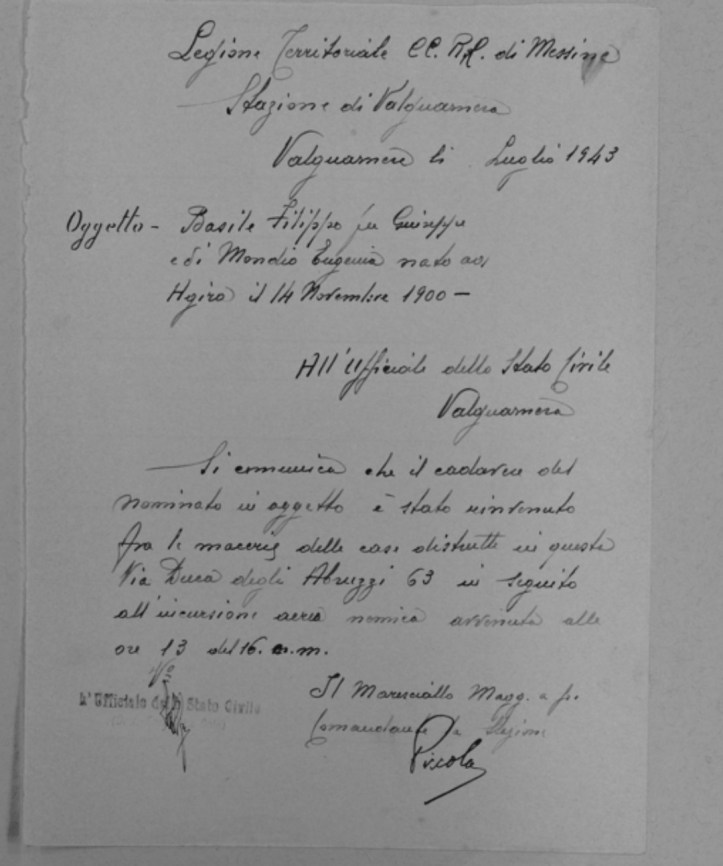 Legione Territoriale CC. RR. di Messina
Stazione di Valguarnera
Valguarnera li Luglio 1943
Oggetto - Basile Filippo fu Giuseppe
e di Mondio Eugenia nato ad
Agira il 14 Novembre 1900 -
All'Ufficiale dello Stato Civile
Valguarnera
Si comunica che il cadavere del
nominato in oggetto è stato rinvenuto
fra le macerie delle case distrutte in questa
Via Duca degli Abruzzi 63 in seguito
all'incursione aerea nemica avvenuta alle
ore 13 del 16. c.m.
L'Ufficiale dello Stato Civile
Il Maresciallo Magg. a pi.
Comandante la Stazione
Piccolo